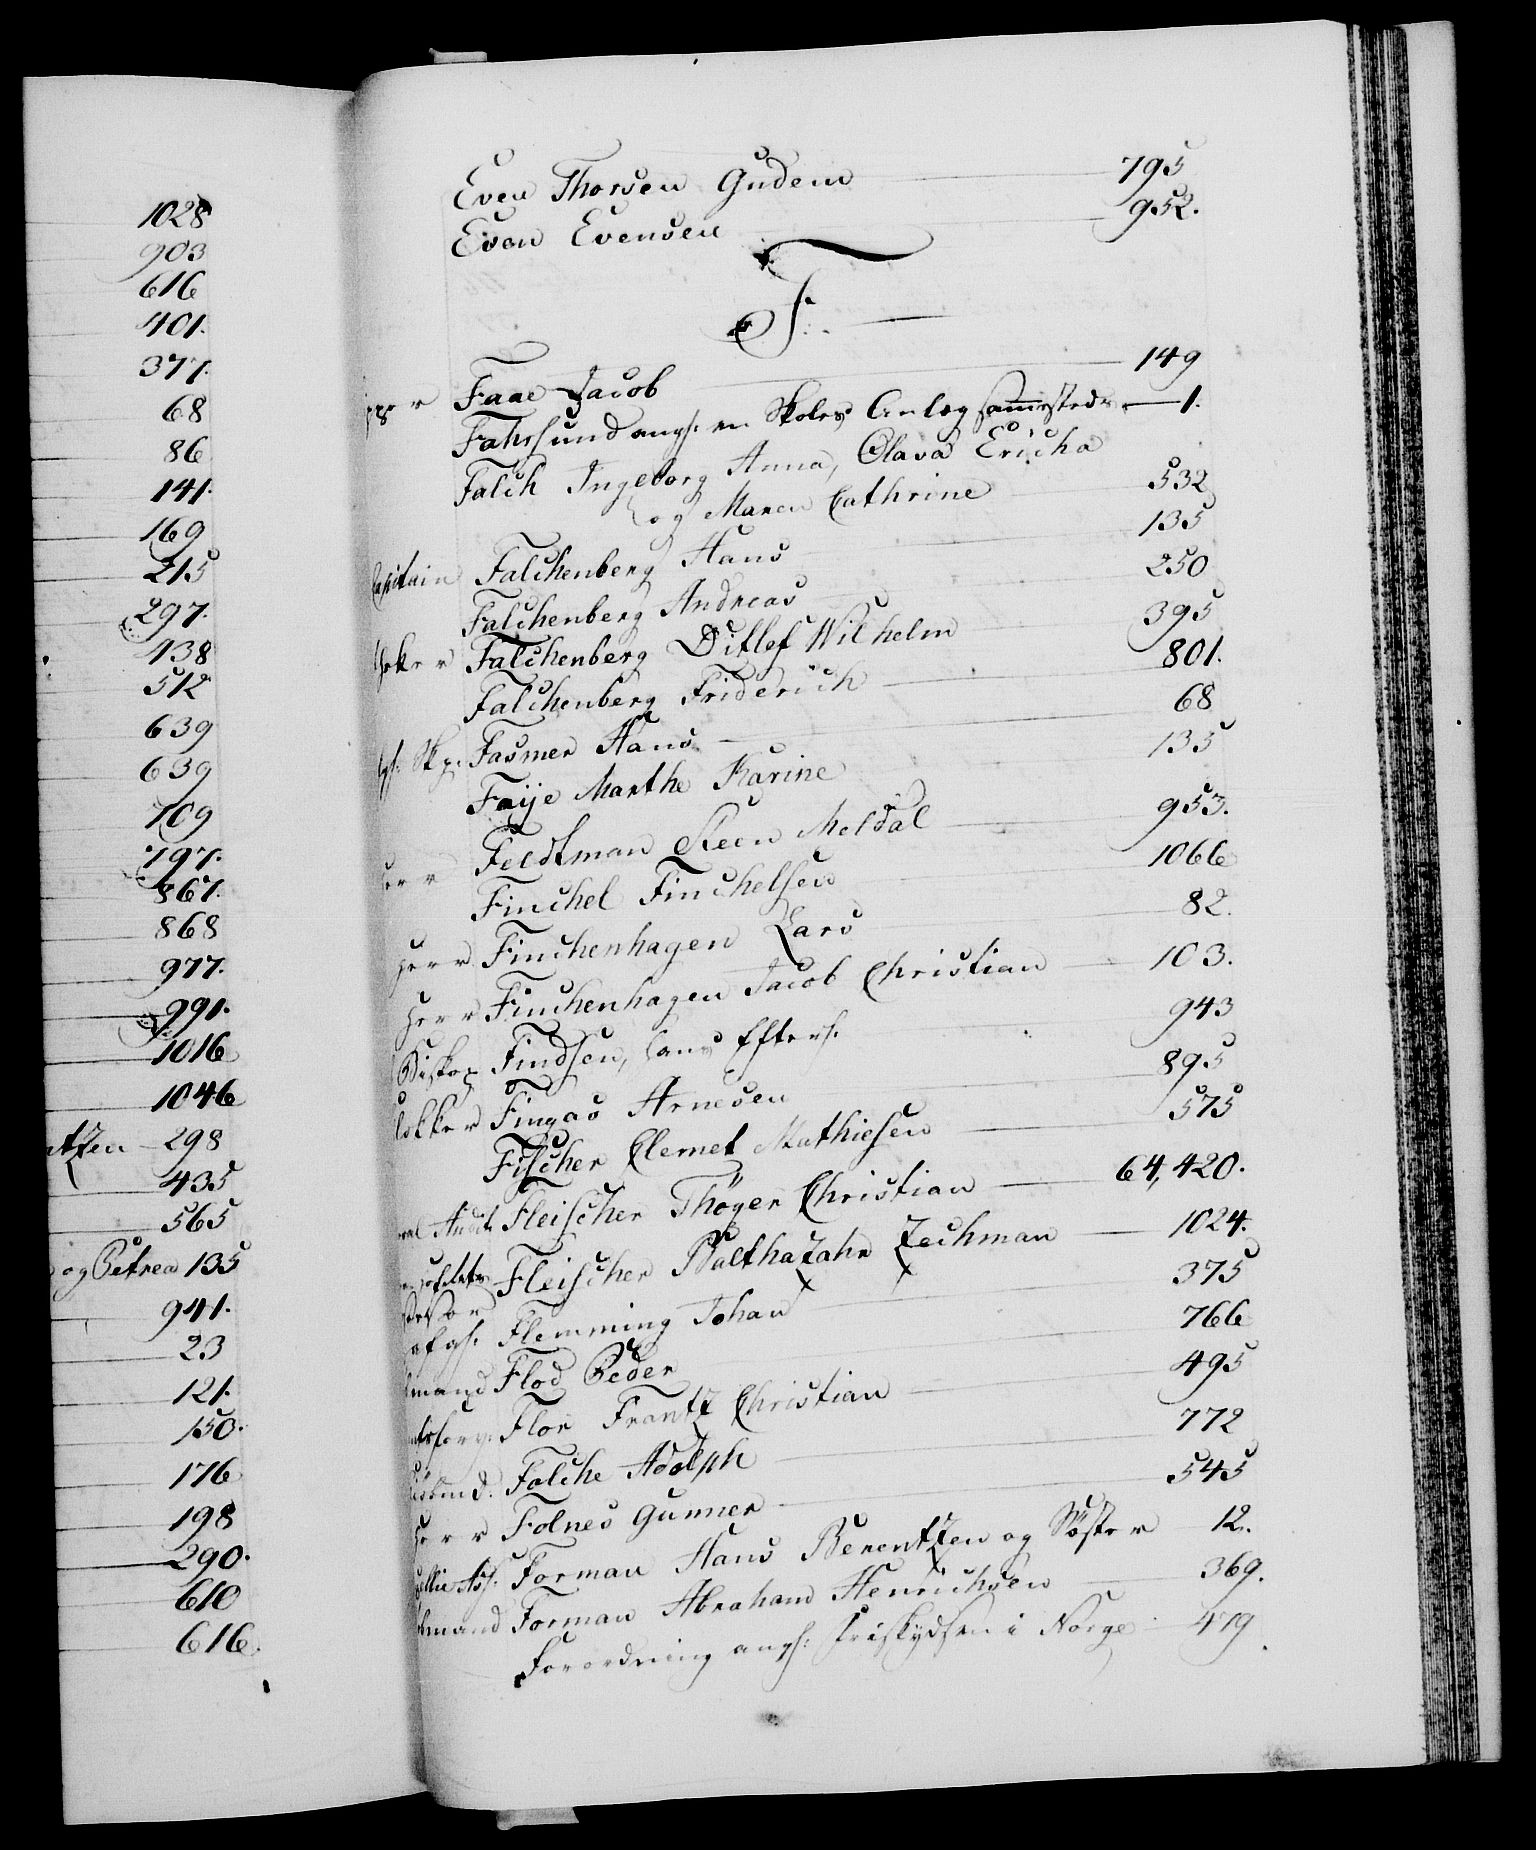 1028
903
616
401.
377.
68
86
141.
169
215
297.
438
512
639
639
709
797.
867.
868
977.
991.
1016
1046
ntzen 298
435
565
og Petrea 135
941.
23
121.
150.
176
198
290.
610
616.
Even Thorsen Gudem 795
Even Evensen 952.
F.
Faae Jacob 149
Fahrsund angl. en Skoles Anlæg sammesteds 1.
Falch Ingeborg Anna, Olava Ericha
og Maren Cathrine 532
Capitain Falchenberg Hans 135
Falchenberg Andreas 250
Falchenberg Ditlef Wilhelm 395
Falchenberg Friderich 801.
Skp. Fasmer Hans 68
Faije Marthe Karine 135
Feldtman Steen Meldal 953.
Finchel Finchelsen 1066
Herr Finchenhagen Lars 82.
Herr Finchenhagen Jacob Christian 103.
Biskop Findsen, hans Efterl. 943
lokker Fingas Arnesen 895
Fischer Clemet Mathiesen 575
Audit Fleischer Thøger Christian 64, 420.
Fleischer Balthazahr Zechman 1024.
afgl. Flemming Johan 375
mand Flod Peder 766
Flor Frantz Christian 495
Falche Adolph 772
Herr Folnes Gunner 545
Forman Hans Berentzen og Søster 12.
mand Forman Abraham Henrichsen 369.
Forordning angl: Friskydsen i Norge 479